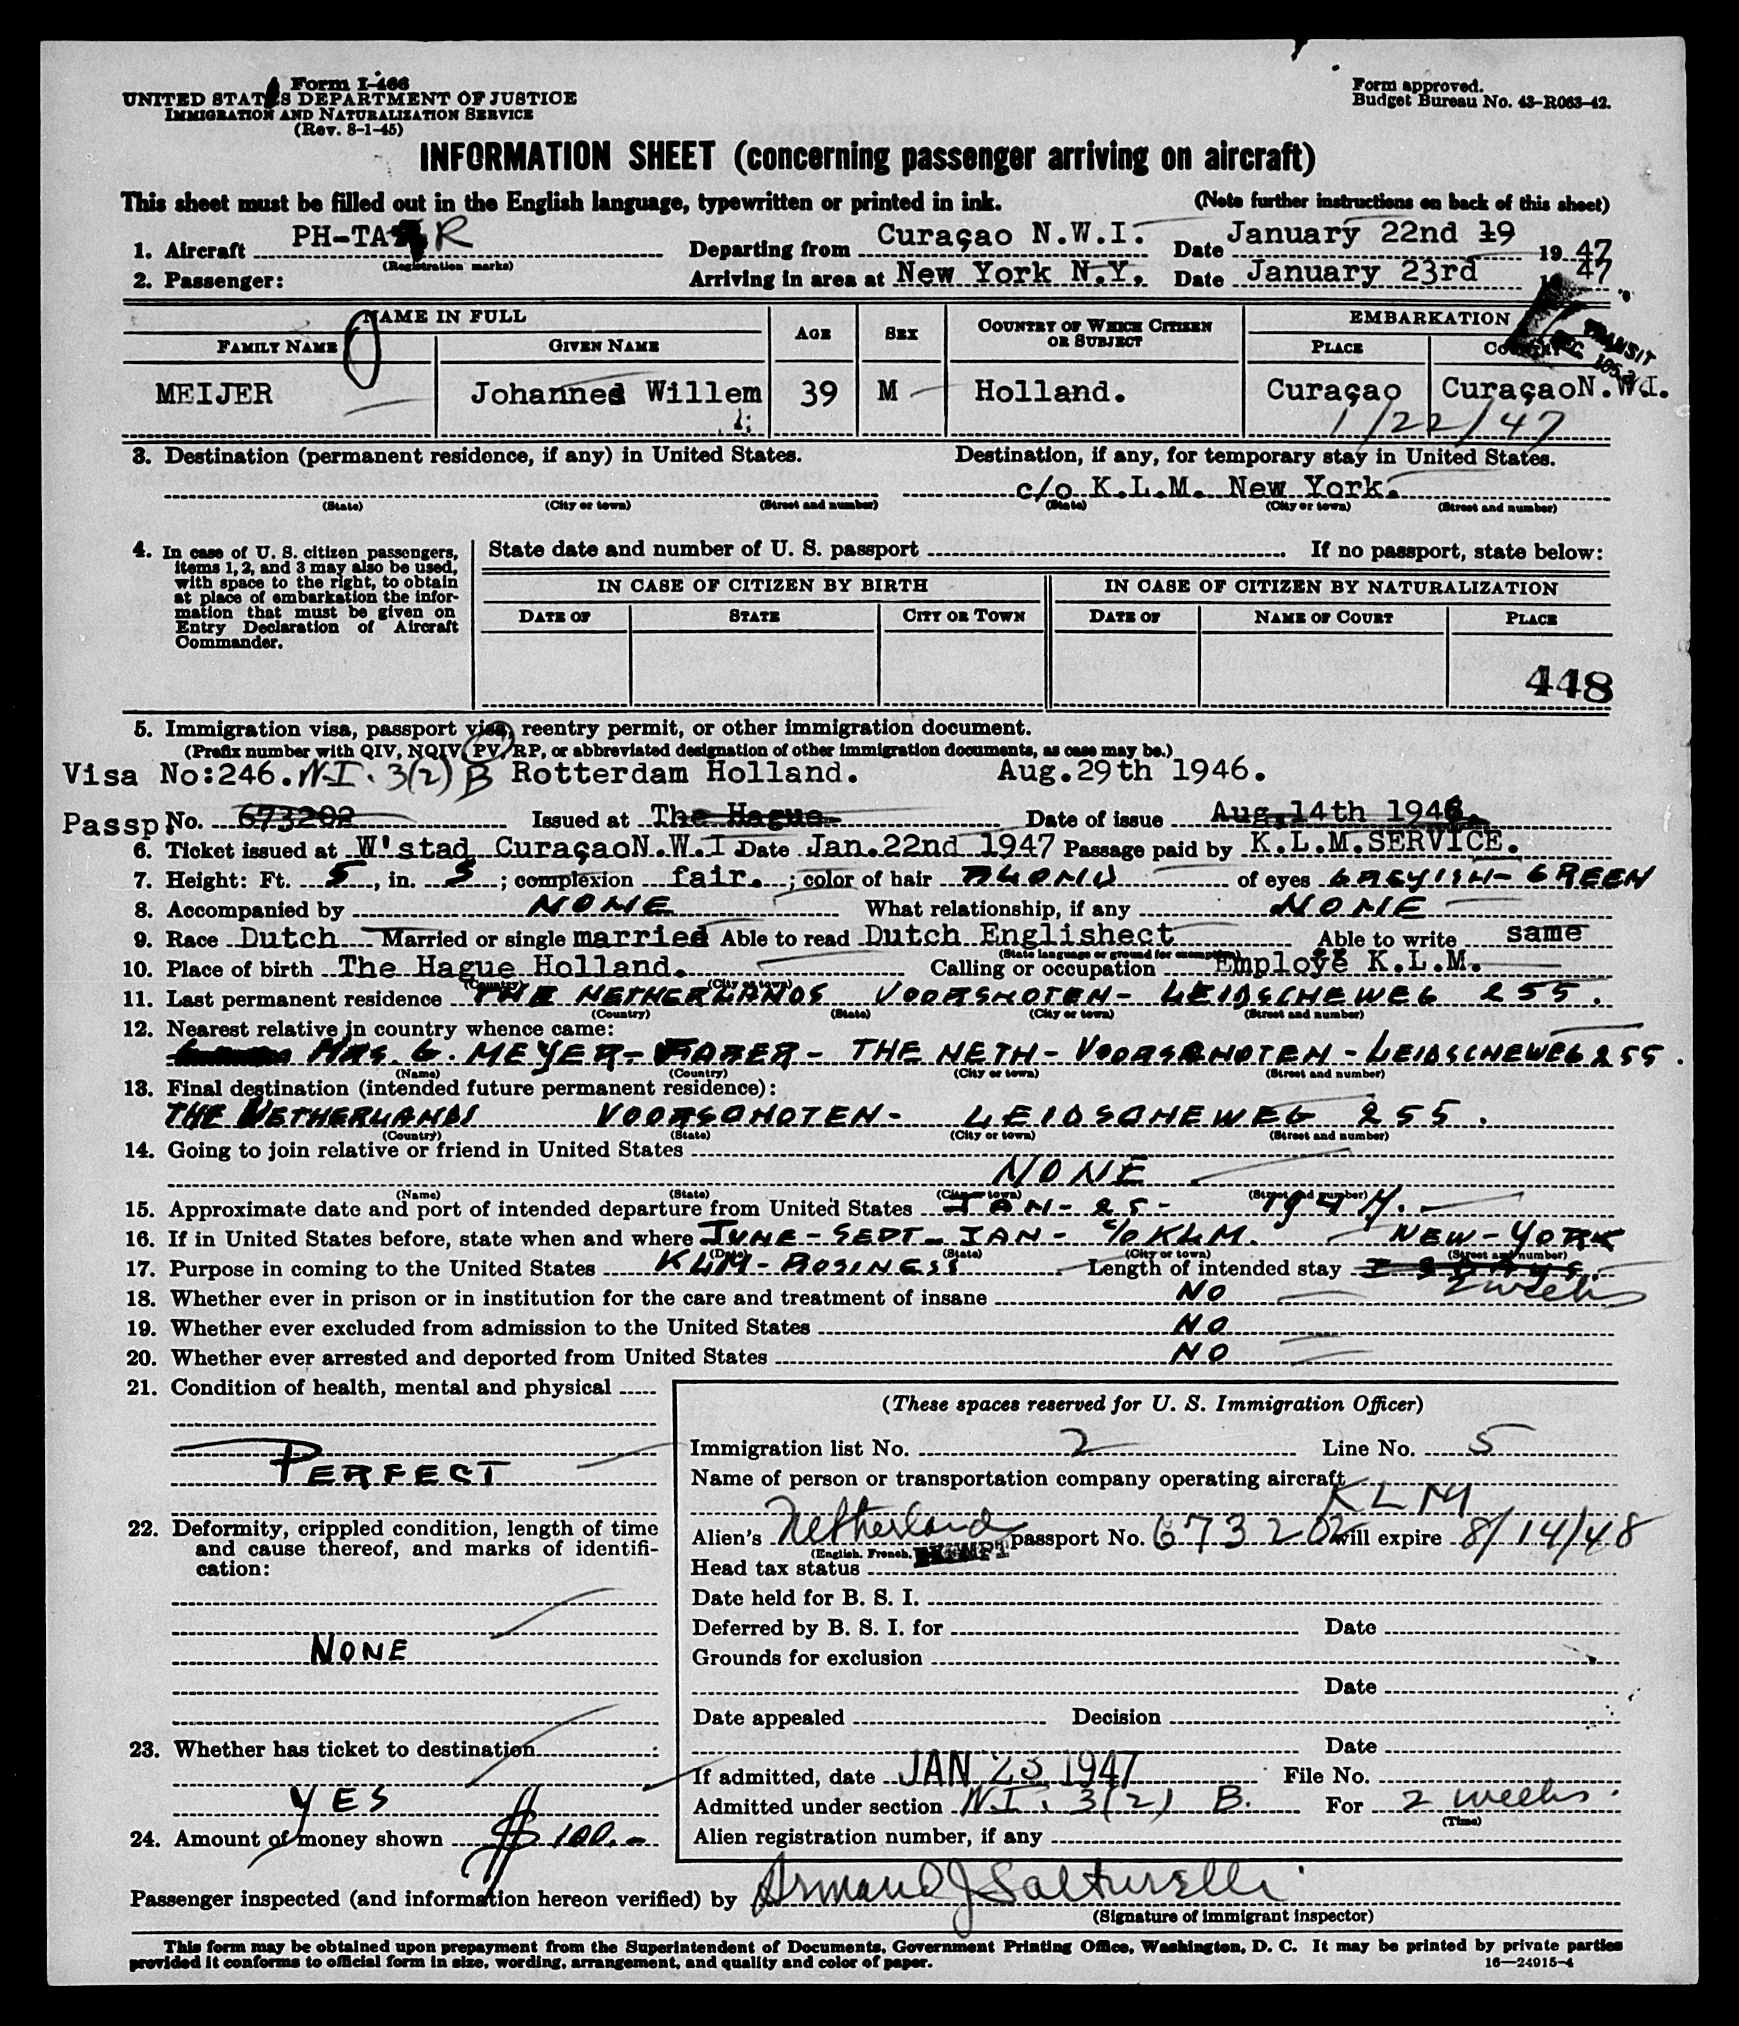 Form I-466
UNITED STATES DEPARTMENT OF JUSTICE
IMMIGRATION AND NATURALIZATION SERVICE
(Rev. 8-1-45)
Form approved.
Budget Bureau No. 43-R063-42.
INFORMATION SHEET (concerning passenger arriving on aircraft)
This sheet must be filled out in the English language, typewritten or printed in ink. (Note further instructions on back of this sheet)
1. Aircraft PH-TA R Departing from Curaçao N.W.I. Date January 22nd 19 1947
(Registration marks)
2. Passenger: Arriving in area at New York N.Y. Date January 23rd 47
NAME IN FULL AGE SEX COUNTRY OF WHICH CITIZEN OR SUBJECT EMBARKATION
FAMILY NAME GIVEN NAME PLACE COUNTRY
TRANSIT
MEIJER Johannes Willem 39 M Holland. Curaçao CuraçaoN.W.I.
1/22/47
3. Destination (permanent residence, if any) in United States. Destination, if any, for temporary stay in United States.
c/o K.L.M. New York.
(State) (City or town) (Street and number) (State) (City or town) (Street and number)
4. In case of U. S. citizen passengers, items 1, 2, and 3 may also be used, with space to the right, to obtain at place of embarkation the information that must be given on Entry Declaration of Aircraft Commander.
State date and number of U. S. passport If no passport, state below:
IN CASE OF CITIZEN BY BIRTH IN CASE OF CITIZEN BY NATURALIZATION
DATE OF STATE CITY OR TOWN DATE OF NAME OF COURT PLACE
448
5. Immigration visa, passport visa, reentry permit, or other immigration document.
(Prefix number with QIV, NQIV, PV, RP, or abbreviated designation of other immigration documents, as case may be.)
Visa No:246. N.I. 3(2) B Rotterdam Holland. Aug.29th 1946.
Passp. No. 673202 Issued at The Hague Date of issue Aug.14th 1946.
6. Ticket issued at W'stad CuraçaoN.W.I Date Jan.22nd 1947 Passage paid by K.L.M.SERVICE.
7. Height: Ft. 5, in. 5; complexion fair. ; color of hair BLOND of eyes GREYISH-GREEN
8. Accompanied by NONE What relationship, if any NONE
9. Race Dutch Married or single married Able to read Dutch Englishect Able to write same
(State language or ground for exemption)
10. Place of birth The Hague Holland. Calling or occupation Employé K.L.M.
(Country) (City or town)
11. Last permanent residence THE NETHERLANDS VOORSCHOTEN- LEIDSCHEWEG 255.
(Country) (State) (City or town) (Street and number)
12. Nearest relative in country whence came:
MRS. G. MEYER-FABER- THE NETH- VOORSCHOTEN-LEIDSCHEWEG 255.
(Name) (Country) (City or town) (Street and number)
13. Final destination (intended future permanent residence):
THE NETHERLANDS VOORSCHOTEN- LEIDSCHEWEG 255.
(Country) (State) (City or town) (Street and number)
14. Going to join relative or friend in United States
NONE
(Name) (State) (City or town) (Street and number)
15. Approximate date and port of intended departure from United States JAN-25- 1947.-
16. If in United States before, state when and where JUNE-SEPT-JAN- c/o KLM. NEW-YORK
(Date) (State) (City or town) (Street and number)
17. Purpose in coming to the United States KLM-BUSINESS Length of intended stay 2 weeks
18. Whether ever in prison or in institution for the care and treatment of insane NO
19. Whether ever excluded from admission to the United States NO
20. Whether ever arrested and deported from United States NO
21. Condition of health, mental and physical
PERFECT
22. Deformity, crippled condition, length of time and cause thereof, and marks of identification:
NONE
23. Whether has ticket to destination :
YES
24. Amount of money shown $ 100.-
(These spaces reserved for U. S. Immigration Officer)
Immigration list No. 2 Line No. 5
Name of person or transportation company operating aircraft
KLM
Alien's Netherland passport No. 673202 will expire 8/14/48
(English, French, EXEMPT
Head tax status
Date held for B. S. I.
Deferred by B. S. I. for Date
Grounds for exclusion
Date
Date appealed Decision
Date
If admitted, date JAN 23 1947 File No.
Admitted under section N.I. 3(2) B. For 2 weeks.
(Time)
Alien registration number, if any
Passenger inspected (and information hereon verified) by Armand J Salturelli
(Signature of immigrant inspector)
This form may be obtained upon prepayment from the Superintendent of Documents, Government Printing Office, Washington, D. C. It may be printed by private parties
provided it conforms to official form in size, wording, arrangement, and quality and color of paper. 16—24915-4